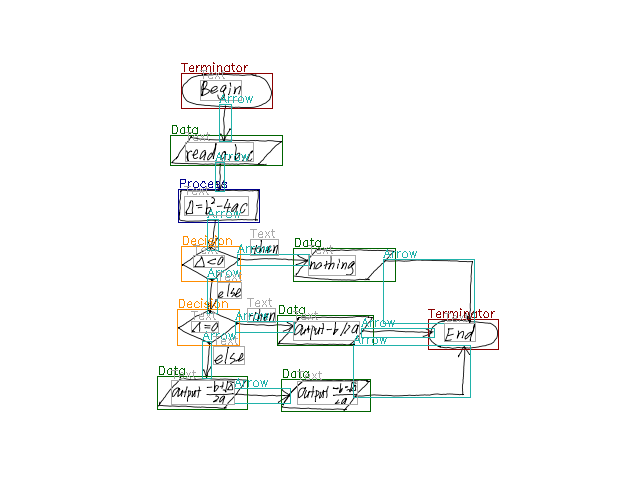 Terminator
Text
Begin
Arrow
Data
Text
read a,b,c
Arrow
Process
Text
Δ=b²-4ac
Arrow
Decision
Text
Δ<0
Arrow
Text
then
Data
Text
nothing
Arrow
Arrow
Text
else
Decision
Text
Δ=0
Arrow
Text
then
Data
Text
Output -b/2a
Arrow
Terminator
Text
End
Arrow
Text
else
Arrow
Data
Text
Output -b+√Δ/2a
Arrow
Data
Text
Output -b-√Δ/2a